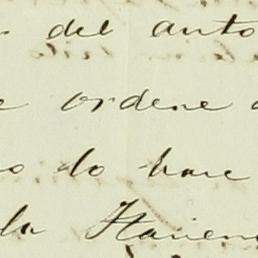 del auto
ordene
lo hace
la Hacien